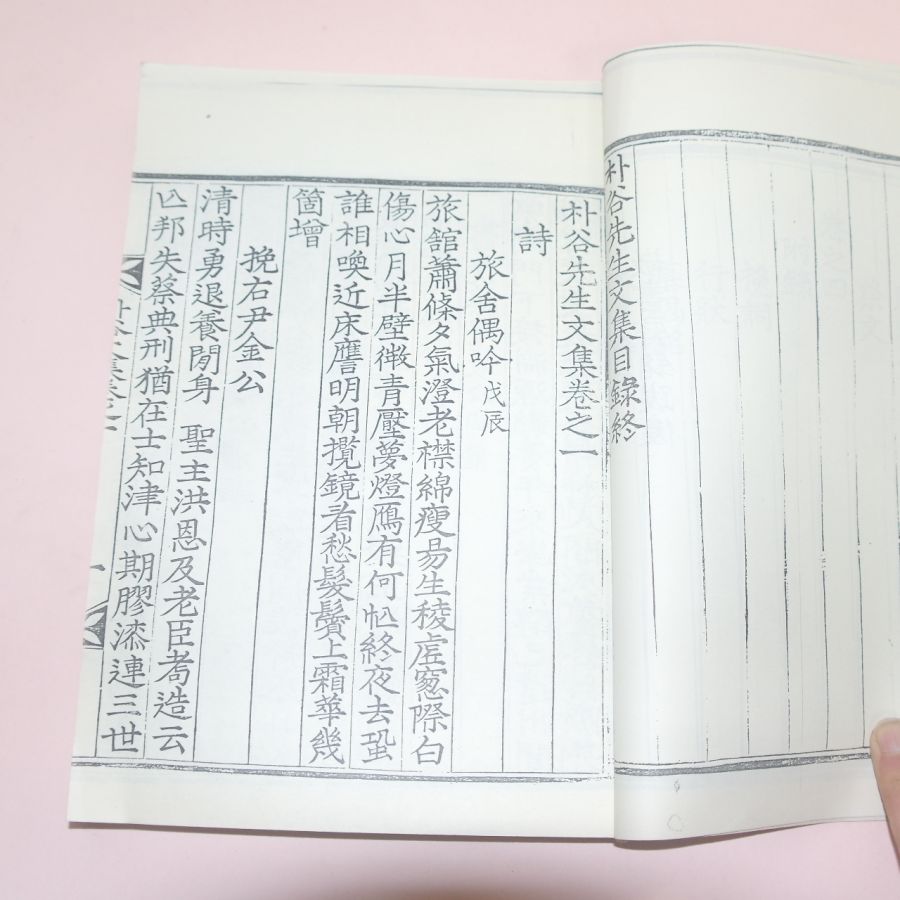 朴谷先生文集目錄終
朴谷先生文集卷之一
詩
旅舍偶吟 戊辰
旅舘蕭條夕氣澄老襟綿瘦易生稜虛窓際白
傷心月半壁微青壓夢燈鴈有何忙終夜去蛩
誰相喚近床譍明朝攬鏡看愁髮鬢上霜華幾
箇增
挽右尹金公
清時勇退養閒身 聖主洪恩及老臣耇造云
亡邦失蔡典刑猶在士知津心期膠漆連三世
朴谷文集卷之一
一